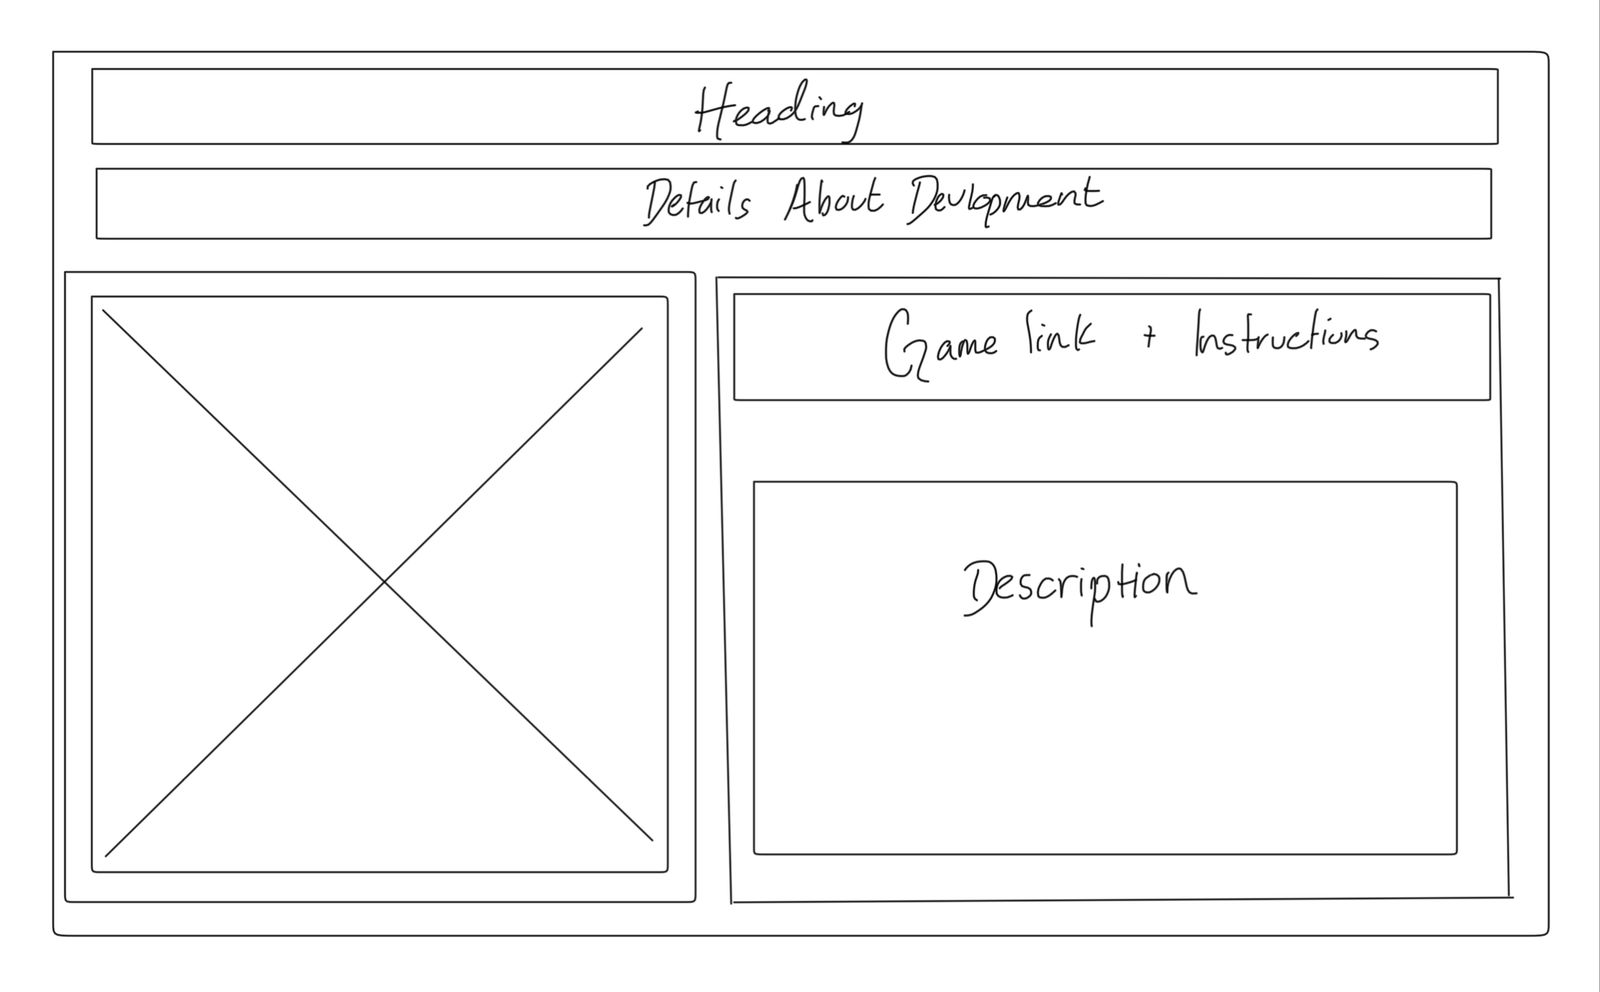 Heading
Details About Devlopment
Game link + Instructions
Description